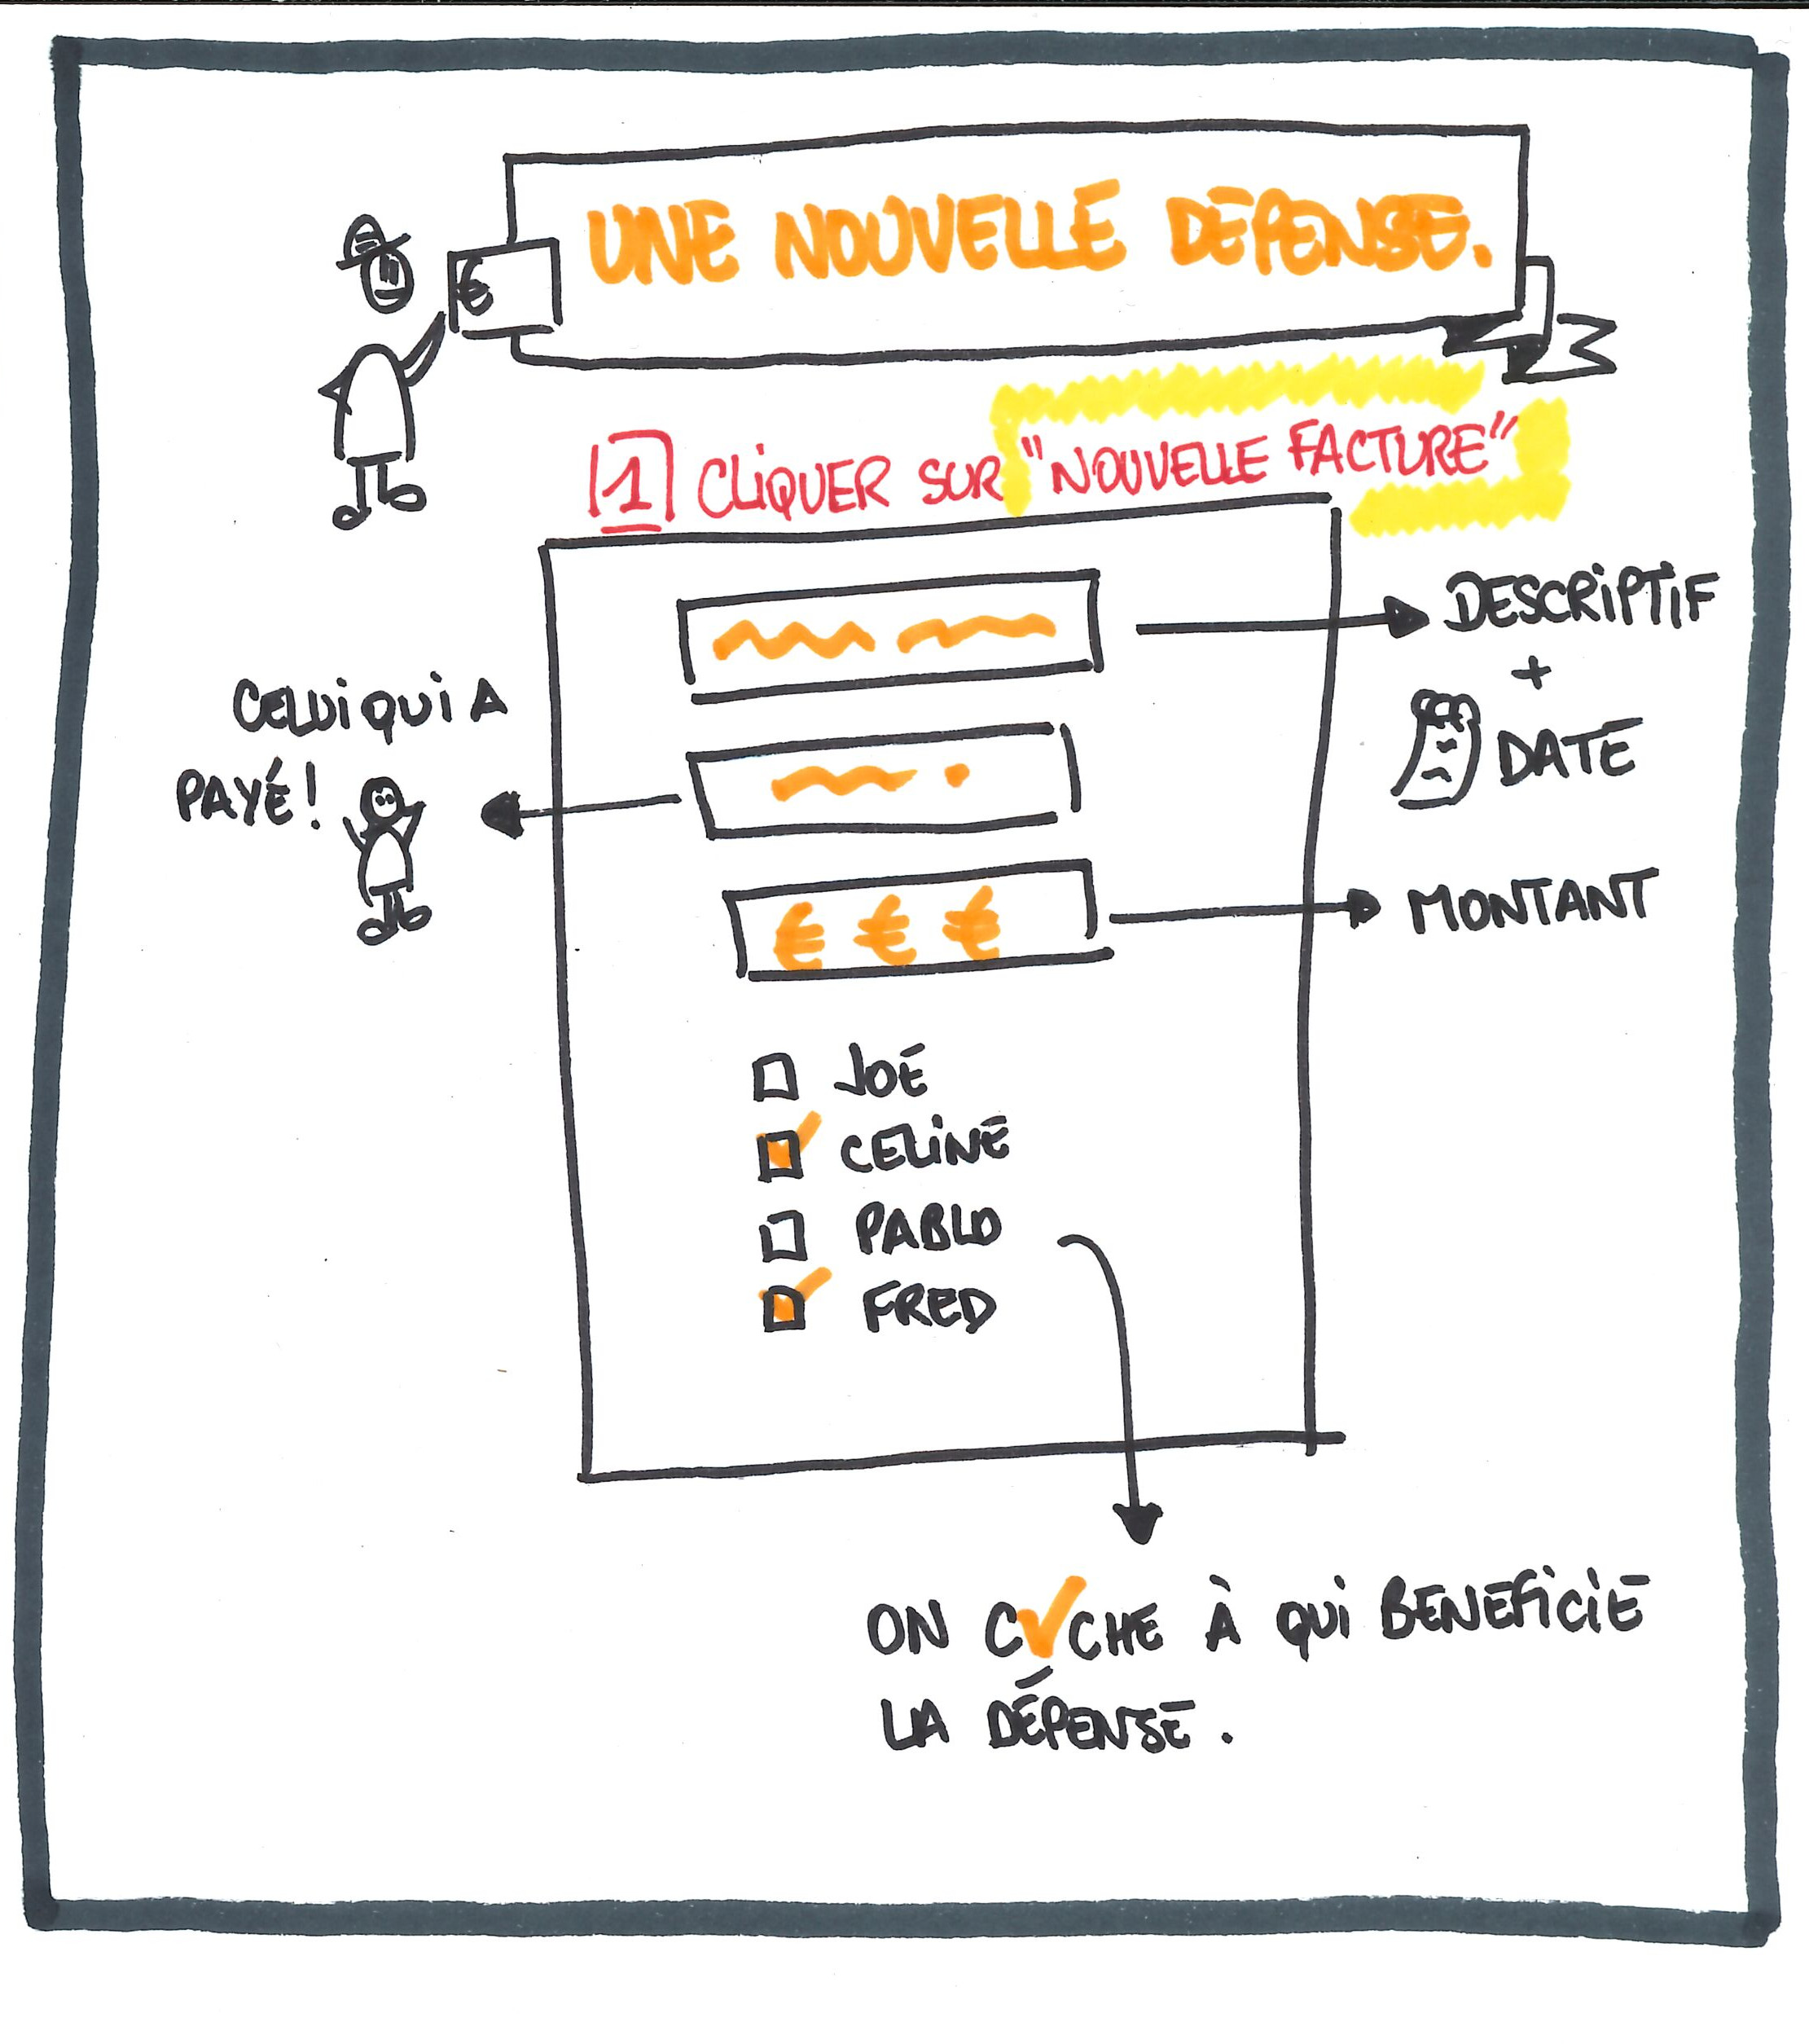 €
UNE NOUVELLE DÉPENSE.
1 CLIQUER SUR "NOUVELLE FACTURE"
DESCRIPTIF
+
DATE
CELUI QUI A
PAYÉ!
€ € €
MONTANT
JOE
CELINE
PABLO
FRED
ON C✓CHE À QUI BENEFICIE
LA DÉPENSE.